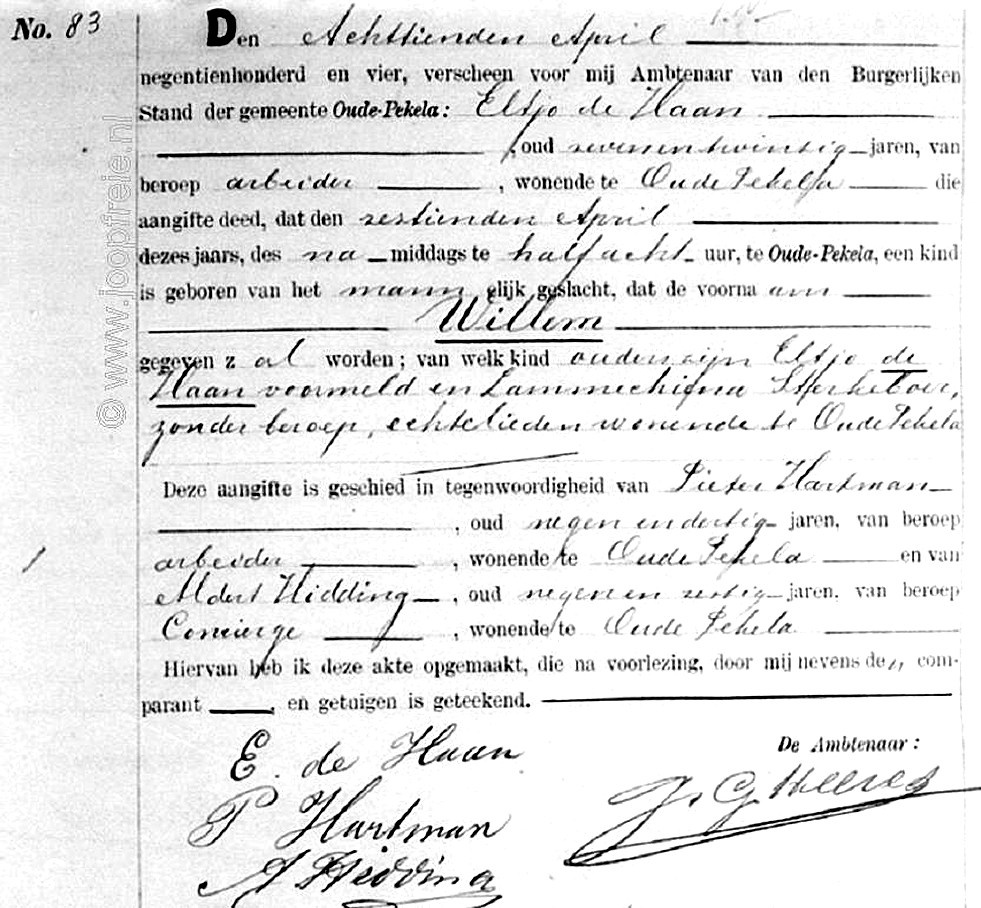 No. 83
Den Achttienden April
negentienhonderd en vier, verscheen voor mij Ambtenaar van den Burgerlijken
Stand der gemeente Oude-Pekela: Eltjo de Haan
, oud zevenentwintig jaren, van
beroep arbeider , wonende te Oude Pekela die
aangifte deed, dat den zestienden April
dezes jaars, des na middags te half acht uur, te Oude-Pekela, een kind
is geboren van het mannelijk geslacht, dat de voornaam
Willem
gegeven zal worden; van welk kind ouders zijn Eltjo de
Haan voormeld en Lammechina Sterkeboer,
zonder beroep, echtelieden wonende te Oude Pekela
Deze aangifte is geschied in tegenwoordigheid van Pieter Hartman
, oud negen en dertig jaren, van beroep
arbeider , wonende te Oude Pekela en van
Aldert Hidding , oud negen en zestig jaren, van beroep
Concierge , wonende te Oude Pekela
Hiervan heb ik deze akte opgemaakt, die na voorlezing, door mij nevens de „ com-
parant , en getuigen is geteekend.
De Ambtenaar:
E. de Haan
J. G. Heeres
P Hartman
A Hidding
© www.joopfreie.nl